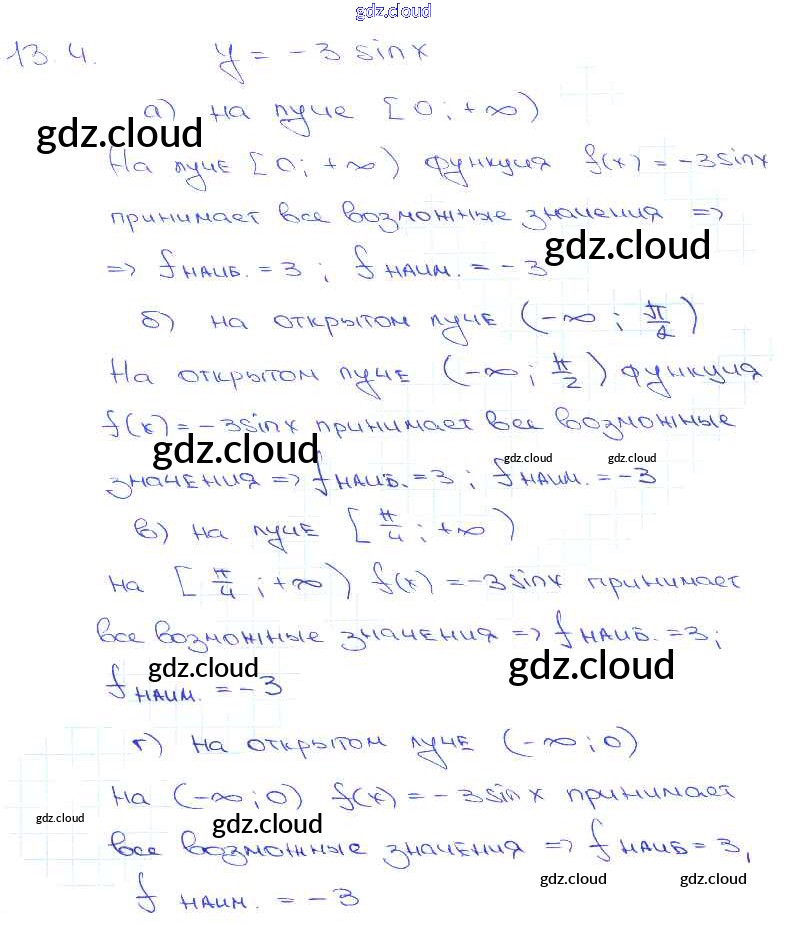 gdz.cloud
13.4. y = -3 sin x
а) на луче [0; +∞)
gdz.cloud
На луче [0; +∞) функция f(x) = -3sinx
принимает все возможные значения =>
gdz.cloud
=> f наиб. = 3; f наим. = -3
б) на открытом луче (-∞; π/2)
На открытом луче (-∞; π/2) функция
f(x) = -3sinx принимает все возможные
gdz.cloud gdz.cloud gdz.cloud
значения => f наиб. = 3; f наим. = -3
в) на луче [π/4; +∞)
на [π/4; +∞) f(x) = -3sinx принимает
все возможные значения => f наиб. = 3;
gdz.cloud gdz.cloud
f наим. = -3
г) на открытом луче (-∞; 0)
на (-∞; 0) f(x) = -3sinx принимает
gdz.cloud gdz.cloud
все возможные значения => f наиб = 3,
gdz.cloud gdz.cloud
f наим. = -3